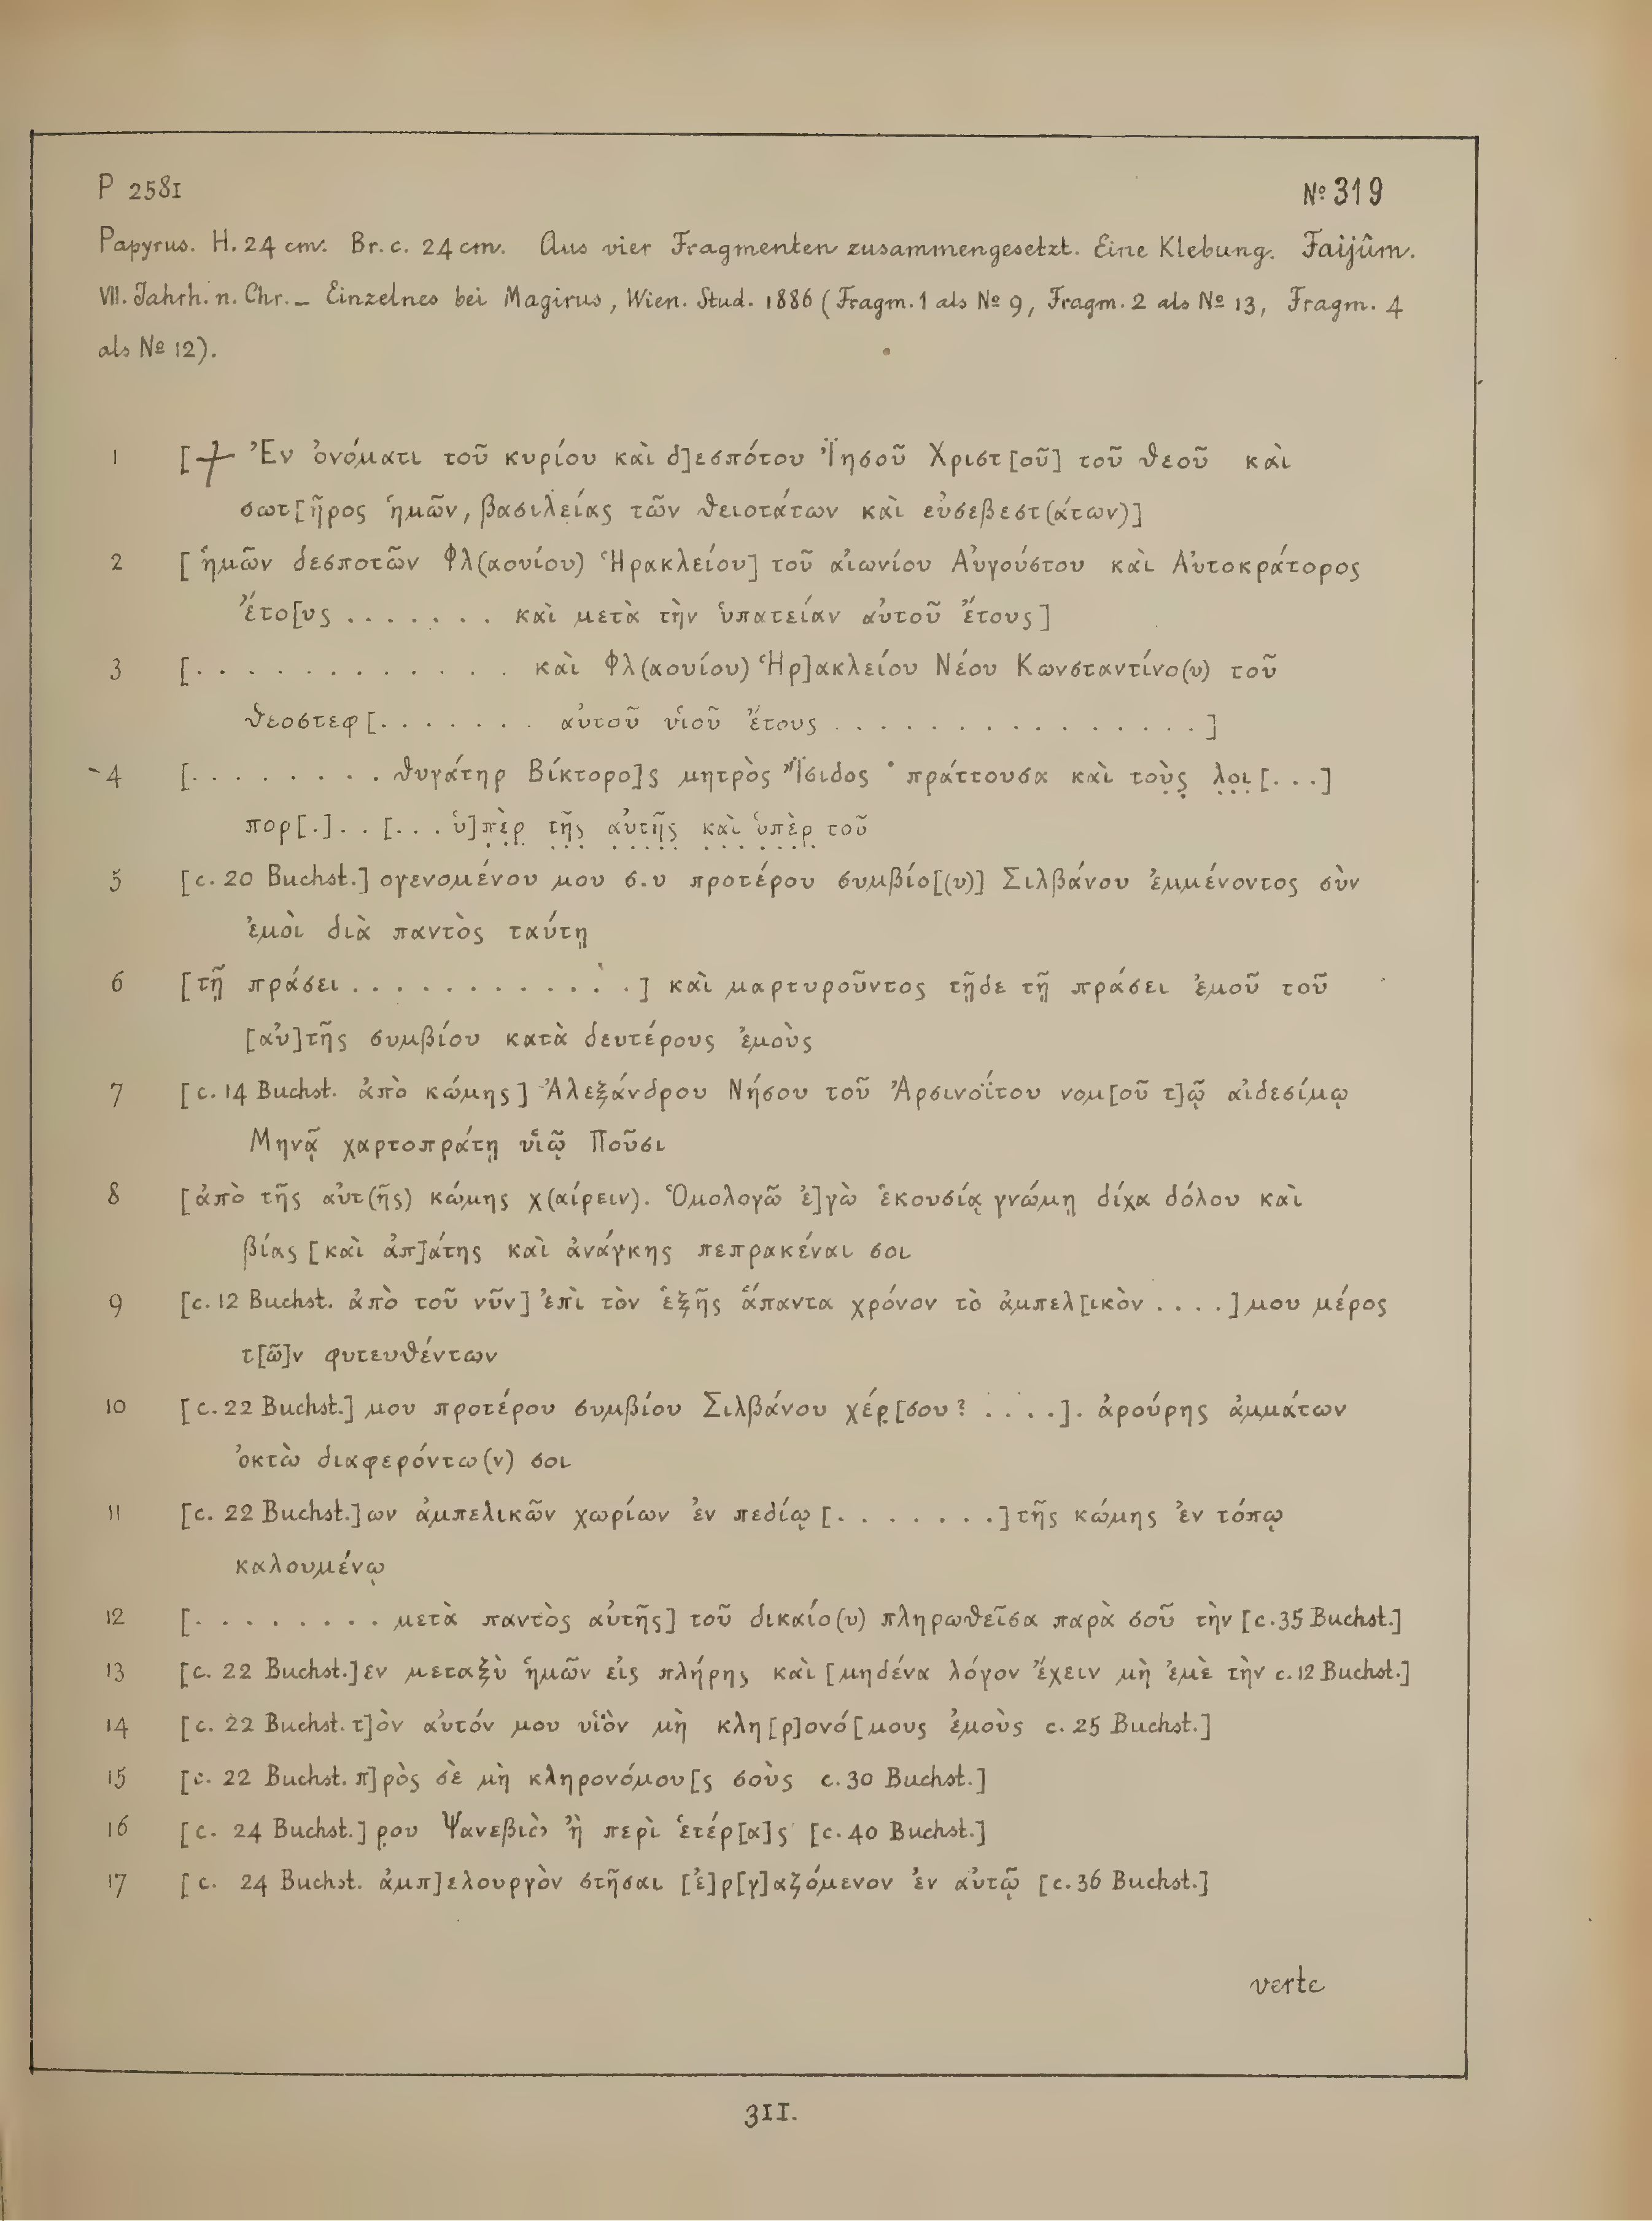 P 2581
№ 319
Papyrus. H. 24 cm. Br. c. 24 cm. Aus vier Fragmenten zusammengesetzt. Eine Klebung. Faijûm.
VII. Jahrh. n. Chr. – Einzelnes bei Magirus, Wien. Stud. 1886 (Fragm. 1 als № 9, Fragm. 2 als № 13, Fragm. 4
als № 12).
1 [⳨ Ἐν ὀνόματι τοῦ κυρίου καὶ δ]εσπότου Ἰ̈ησοῦ Χριστ[οῦ] τοῦ θεοῦ καὶ
σωτ[ῆρος ἡμῶν, βασιλείας τῶν θειοτάτων καὶ εὐσεβεστ(άτων)]
2 [ἡμῶν δεσποτῶν Φλ(αουίου) Ἡρακλείου] τοῦ αἰωνίου Αὐγούστου καὶ Αὐτοκράτορος
ἔτο[υς . . . . . . . καὶ μετὰ τὴν ὑπατείαν αὐτοῦ ἔτους]
3 [. . . . . . . . . . . . . καὶ Φλ(αουίου) Ἡρ]ακλείου Νέου Κωνσταντίνο(υ) τοῦ
θεοστεφ[. . . . . . . αὐτοῦ υἱοῦ ἔτους . . . . . . . . . . . . . . . .]
4 [. . . . . . . . . θυγάτηρ Βίκτορο]ς μητρὸς Ἴ̈σιδος · πράττουσα καὶ τοὺ̣ς̣ λ̣ο̣ι̣[. . .]
πορ[.] . . [. . . ὑ]π̣ὲ̣ρ̣ τ̣ῆ̣ς̣ α̣ὐ̣τ̣ῆ̣ς̣ κ̣α̣ὶ̣ ὑ̣π̣ὲ̣ρ̣ τοῦ
5 [c. 20 Buchst.] ογενομένου μου σ.υ προτέρου συμβίο[(υ)] Σιλβάνου ἐμμένοντος σὺν
ἐμοὶ διὰ παντὸς ταύτῃ
6 [τῇ πράσει . . . . . . . . . . . . .] καὶ μαρτυροῦντος τῇδε τῇ πράσει ἐμοῦ τοῦ
[αὐ]τῆς συμβίου κατὰ δευτέρους ἐμοὺς
7 [c. 14 Buchst. ἀπὸ κώμης] Ἀλεξάνδρου Νήσου τοῦ Ἀρσινοΐτου νομ[οῦ τ]ῷ αἰδεσίμῳ
Μηνᾷ χαρτοπράτῃ υἱῷ Ποῦσι
8 [ἀπὸ τῆς αὐτ(ῆς) κώμης χ(αίρειν). Ὁμολογῶ ἐ]γὼ ἑκουσίᾳ γνώμῃ δίχα δόλου καὶ
βίας [καὶ ἀπ]άτης καὶ ἀνάγκης πεπρακέναι σοι
9 [c. 12 Buchst. ἀπὸ τοῦ νῦν] ἐπὶ τὸν ἑξῆς ἅπαντα χρόνον τὸ ἀμπελ[ικὸν . . . .]μου μέρος
τ[ῶ]ν φυτευθέντων
10 [c. 22 Buchst.] μου προτέρου συμβίου Σιλβάνου χέρ̣[σου? . . . .]. ἀρούρης ἀμμάτων
ὀκτὼ διαφερόντω(ν) σοι
11 [c. 22 Buchst.]ων ἀμπελικῶν χωρίων ἐν πεδίῳ [. . . . . . . .] τῆς κώμης ἐν τόπῳ
καλουμένῳ
12 [. . . . . . . . . μετὰ παντὸς αὐτῆς] τοῦ δικαίο(υ) πληρωθεῖσα παρὰ σοῦ τὴν [c. 35 Buchst.]
13 [c. 22 Buchst.]εν μεταξὺ ἡμῶν εἰς πλήρης καὶ [μηδένα λόγον ἔχειν μὴ ἐμὲ τὴν c. 12 Buchst.]
14 [c. 22 Buchst. τ]ὸν αὐτόν μου υἱὸν μὴ κλη[ρ]ονό[μους ἐμοὺς c. 25 Buchst.]
15 [c. 22 Buchst. π]ρὸς σὲ μὴ κληρονόμου[ς σοὺς c. 30 Buchst.]
16 [c. 24 Buchst.] ρ̣ου ἢ περὶ ἑτέρ[α]ς [c. 40 Buchst.]
17 [c. 24 Buchst. ἀμπ]ελουργὸν στῆσαι [ἐ]ρ[γ]αζόμενον ἐν αὐτῷ [c. 36 Buchst.]
verte
311.